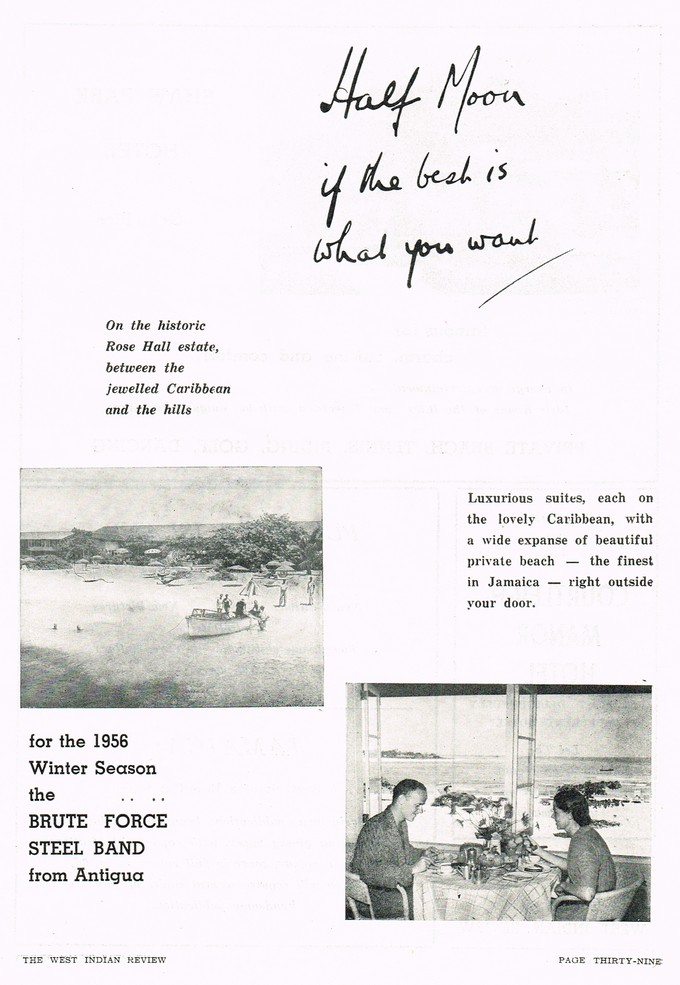 Half Moon
if the best is
what you want
On the historic
Rose Hall estate,
between the
jewelled Caribbean
and the hills
Luxurious suites, each on
the lovely Caribbean, with
a wide expanse of beautiful
private beach — the finest
in Jamaica — right outside
your door.
for the 1956
Winter Season
the .. ..
BRUTE FORCE
STEEL BAND
from Antigua
THE WEST INDIAN REVIEW
PAGE THIRTY-NINE